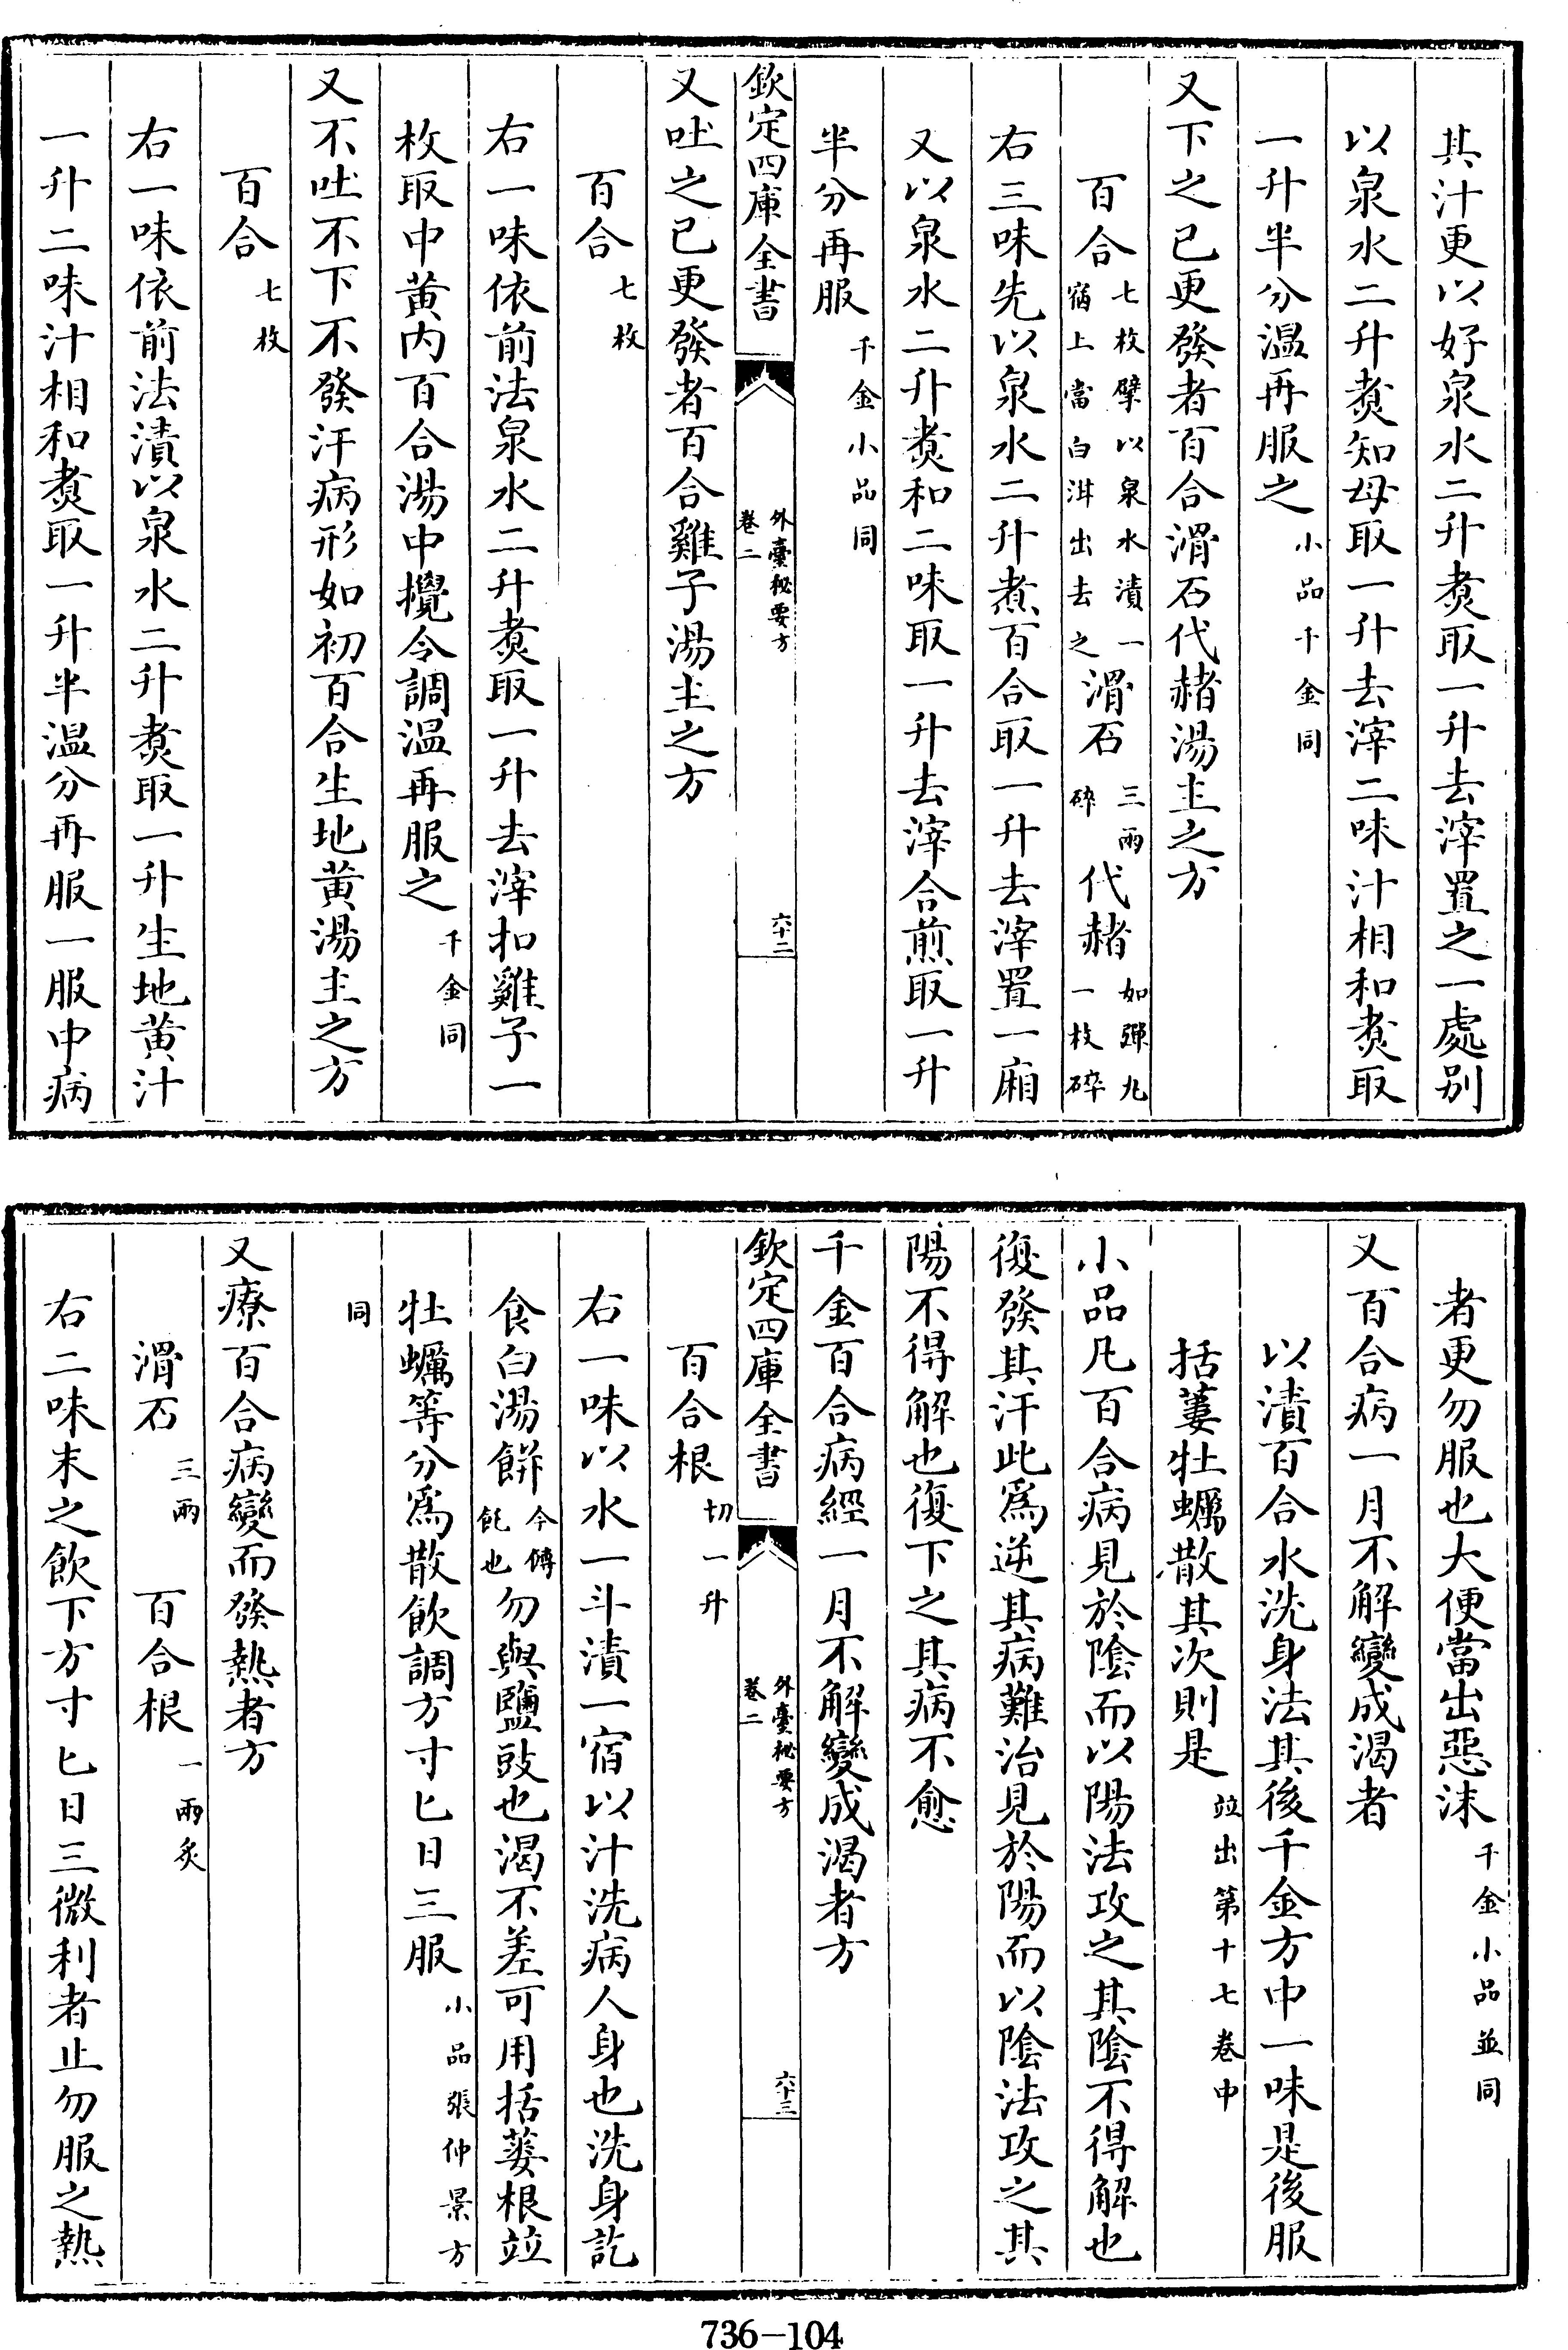 其汁更以好泉水二升煑取一升去滓置之一處别
以泉水二升煑知母取一升去滓二味汁相和煑取
一升半分温再服之小品千金同
又下之已更發者百合滑石代赭湯主之方
百合七枚擘以泉水漬一宿上當白沫出去之滑石三兩碎代赭如彈丸一枚碎
右三味先以泉水二升煮百合取一升去滓置一廂
又以泉水二升煑和二味取一升去滓合煎取一升
半分再服千金小品同
欽定四庫全書 外臺秘要方卷二 六十二
又吐之已更發者百合雞子湯主之方
百合七枚
右一味依前法泉水二升煑取一升去滓扣雞子一
枚取中黄内百合湯中攪令調温再服之千金同
又不吐不下不發汗病形如初百合生地黄湯主之方
百合七枚
右一味依前法漬以泉水二升煑取一升生地黄汁
一升二味汁相和煑取一升半温分再服一服中病
者更勿服也大便當出惡沫千金小品並同
又百合病一月不解變成渴者
以漬百合水洗身法其後千金方中一味是後服
括蔞牡蠣散其次則是竝出第十七卷中
小品凡百合病見於陰而以陽法攻之其陰不得解也
復發其汗此爲逆其病難治見於陽而以陰法攻之其
陽不得解也復下之其病不愈
千金百合病經一月不解變成渴者方
欽定四庫全書 外臺秘要方卷二 六十三
百合根切一升
右一味以水一斗漬一宿以汁洗病人身也洗身訖
食白湯餅今餺飥也勿與鹽豉也渴不差可用括蔞根竝
牡蠣等分爲散飲調方寸匕日三服小品張仲景方
同
又療百合病變而發熱者方
滑石三兩 百合根一兩炙
右二味末之飲下方寸匕日三微利者止勿服之熱
736-104